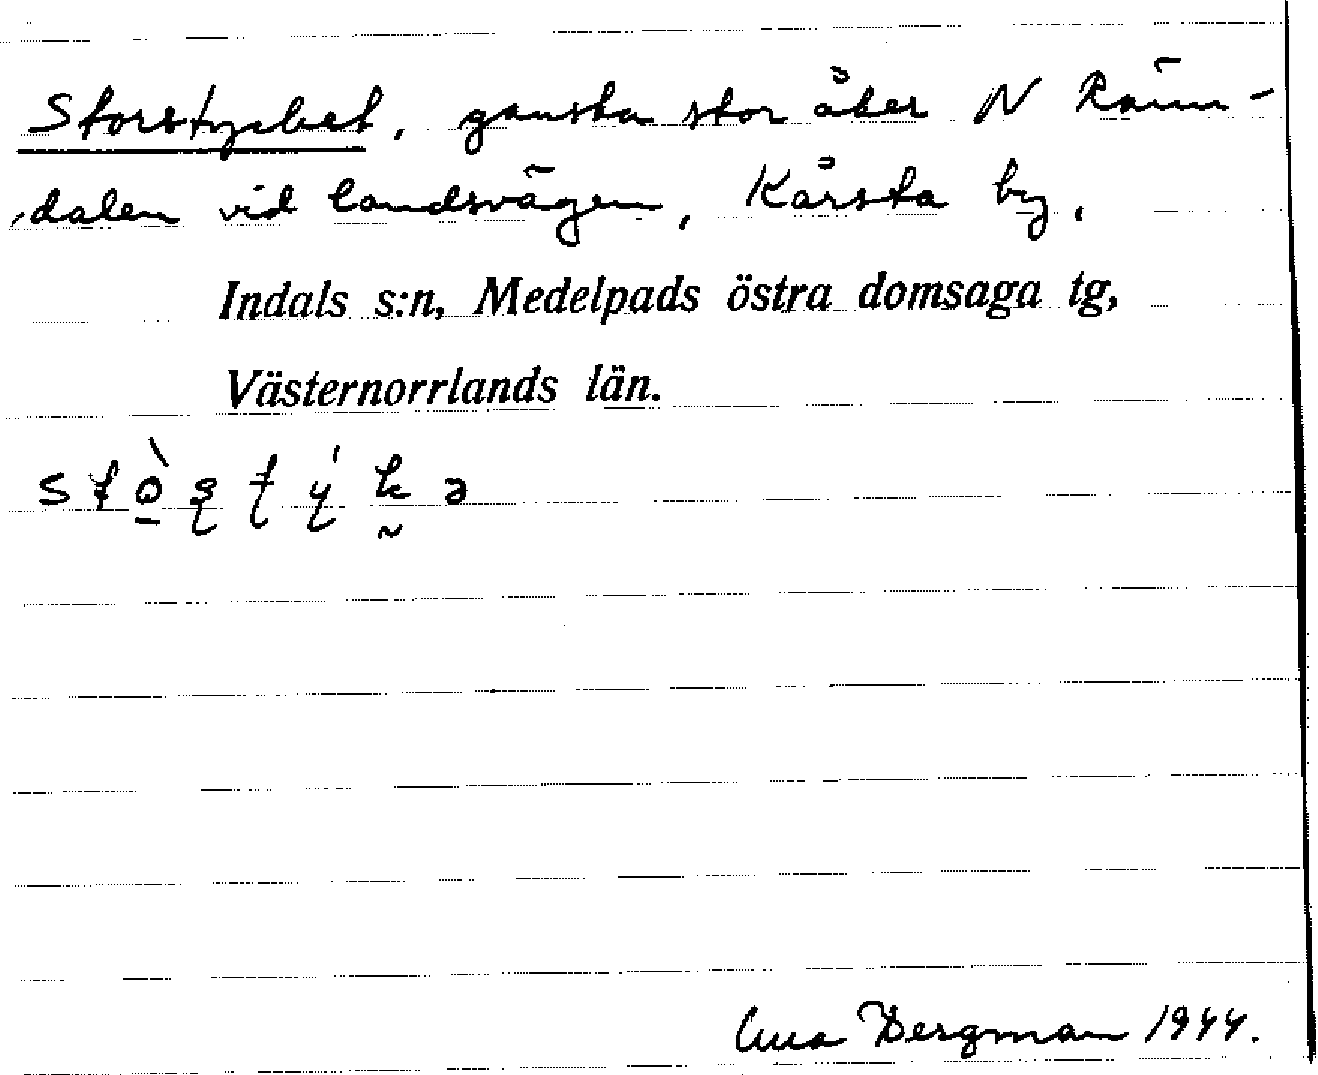 Storstycket, ganska stor åker N Räun-
dalen vid landsvägen, Kårsta by.
Indals s:n, Medelpads östra domsaga tg,
Västernorrlands län.
Bergman 1944.